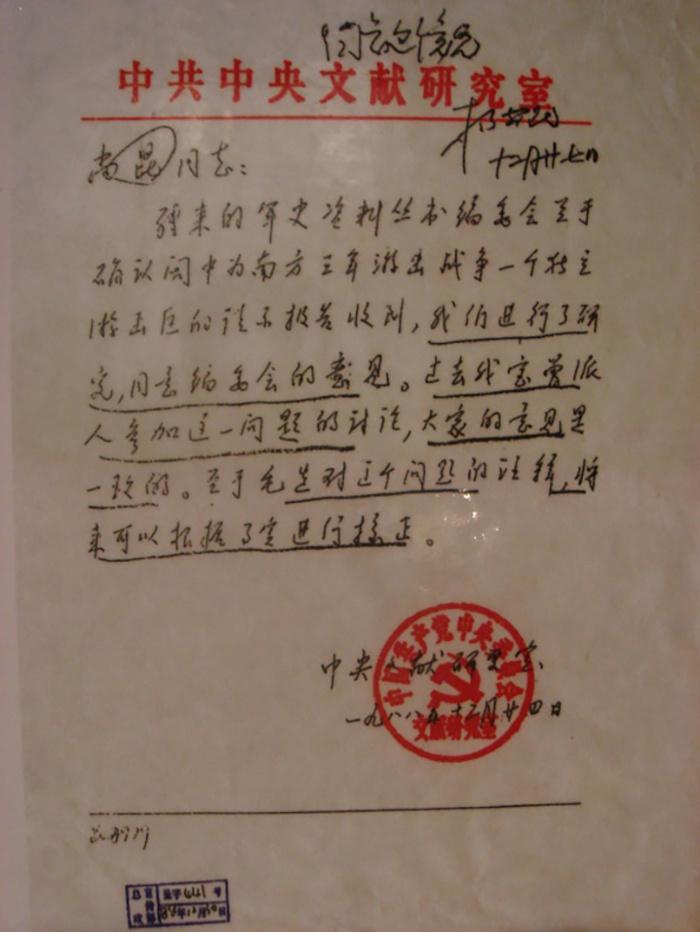 中共中央文献研究室
十二月廿七日
尚昆同志：
转来的军史资料丛书编委会关于
确认闽中为南方三年游击战争一个独立
游击区的请示报告收到，我们进行了研
究，同意编委会的意见。过去我室曾派
人参加这一问题的讨论，大家的意见是
一致的。至于毛选对这个问题的注释，将
来可以根据事实进行校正。
中央文献研究室
一九八八年十二月廿四日
中国共产党中央委员会
文献研究室